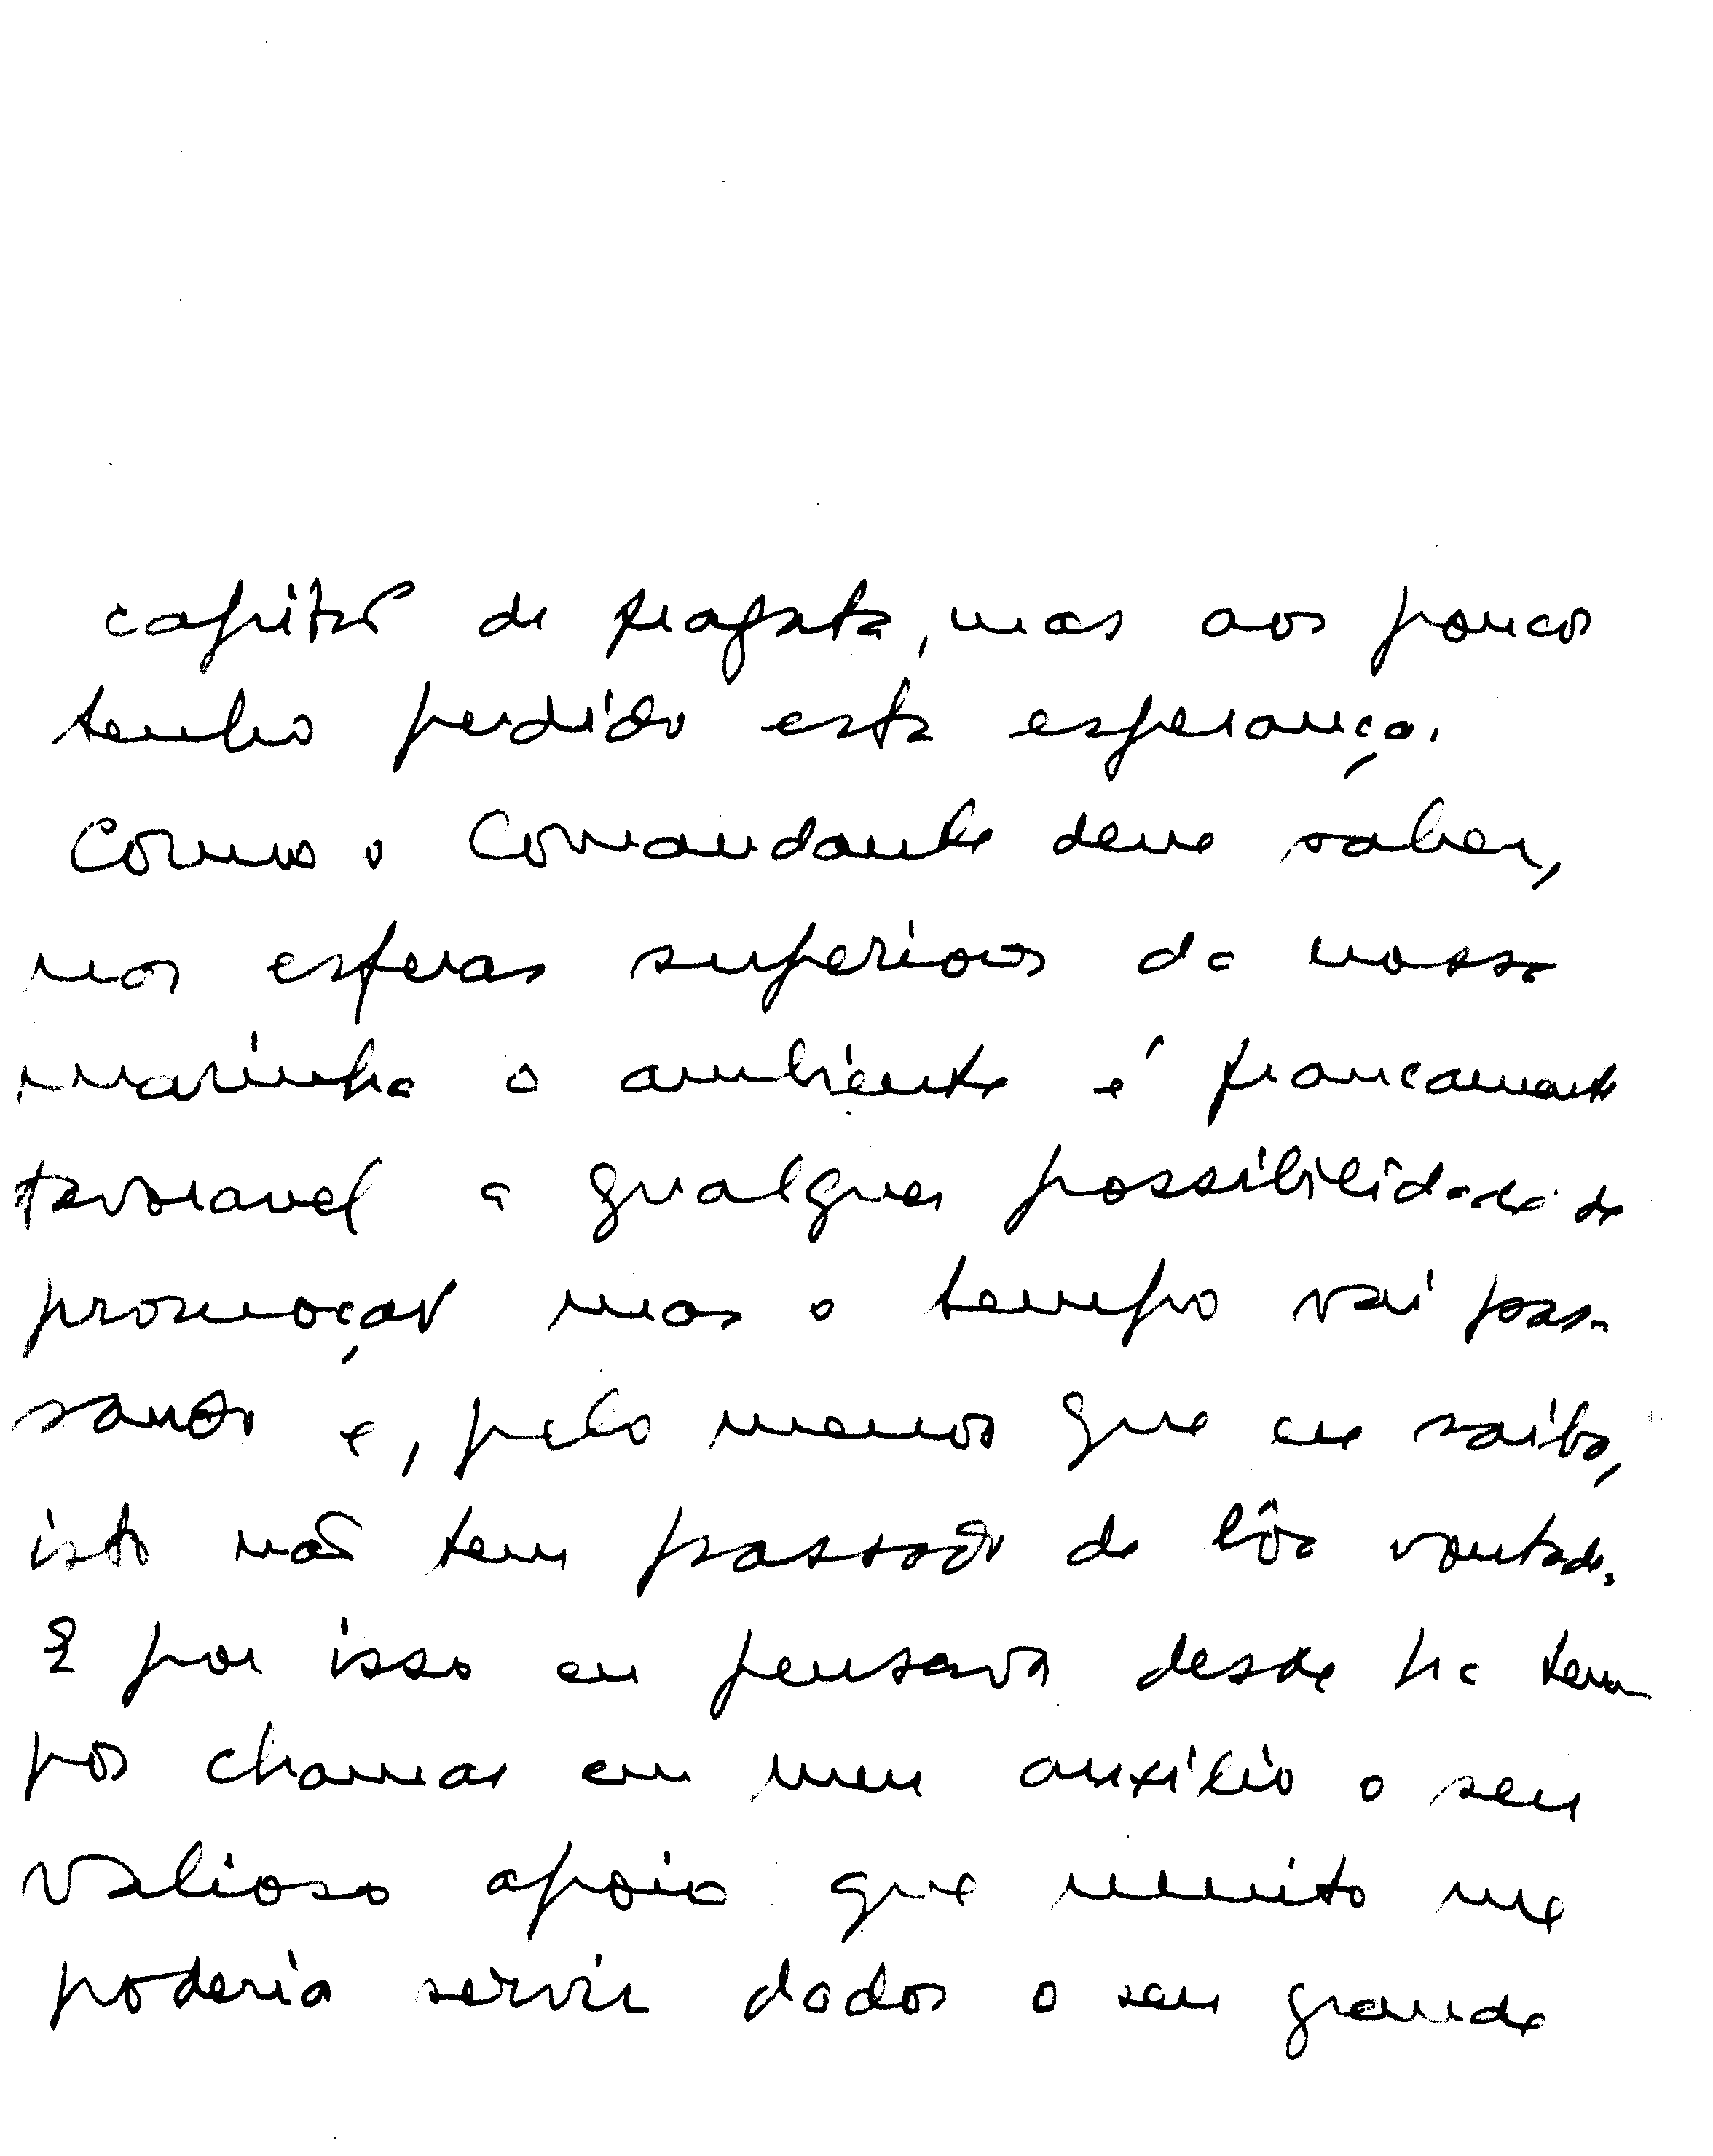 capitão de fragata, mas aos poucos
tenho perdido esta esperança.
Como o Comandante deve saber,
nas esferas superiores da nossa
marinha o ambiente é francamente
favoravel a qualquer possibilidade de
promoção mas o tempo vai pas-
sando e, pelo menos que eu saiba,
isto não tem passado de bôa vontade.
E por isso eu pensava desde ha tem
pos chamar em meu auxílio o seu
valioso apoio que muito me
poderia servir dados o seu grande